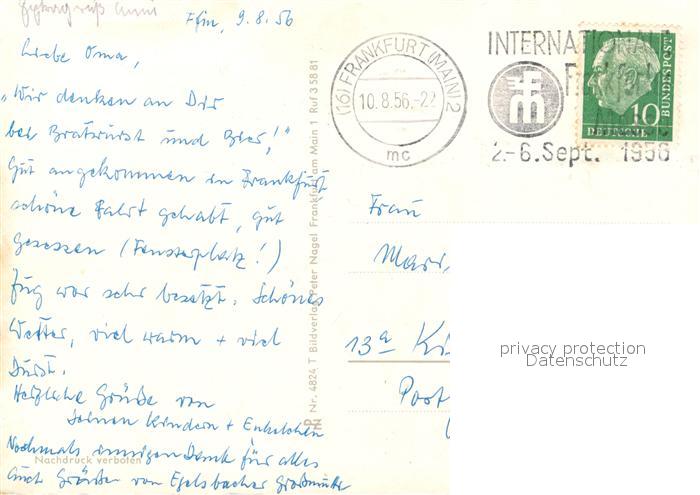 Ffm, 9.8.56
Liebe Oma,
„Wir denken an Dir
bei Bratwurst und Bier,!"
Gut angekommen in Frankfurt,
schöne Fahrt gehabt, gut
Gesessen (Fensterplatz!)
Zug war sehr besetzt. Schönes
Wetter, viel warm + viel
Durst.
Herzliche Grüße von
Deinen Kindern + Enkelchen
Nochmals innigen Dank für alles
Auch Grüße von Egelsbacher Großmutter
Nachdruck verboten
Nr. 4824 T Bildverlag Peter Nagel Frankfurt am Main 1 Ruf 3 58 81
(16) FRANKFURT (MAIN) 2
10.8.56.-22
mc
INTERNATIONALE
2.-6. Sept. 1956
10
DEUTSCHE BUNDESPOST
Frau
13a
Post
privacy protection
Datenschutz